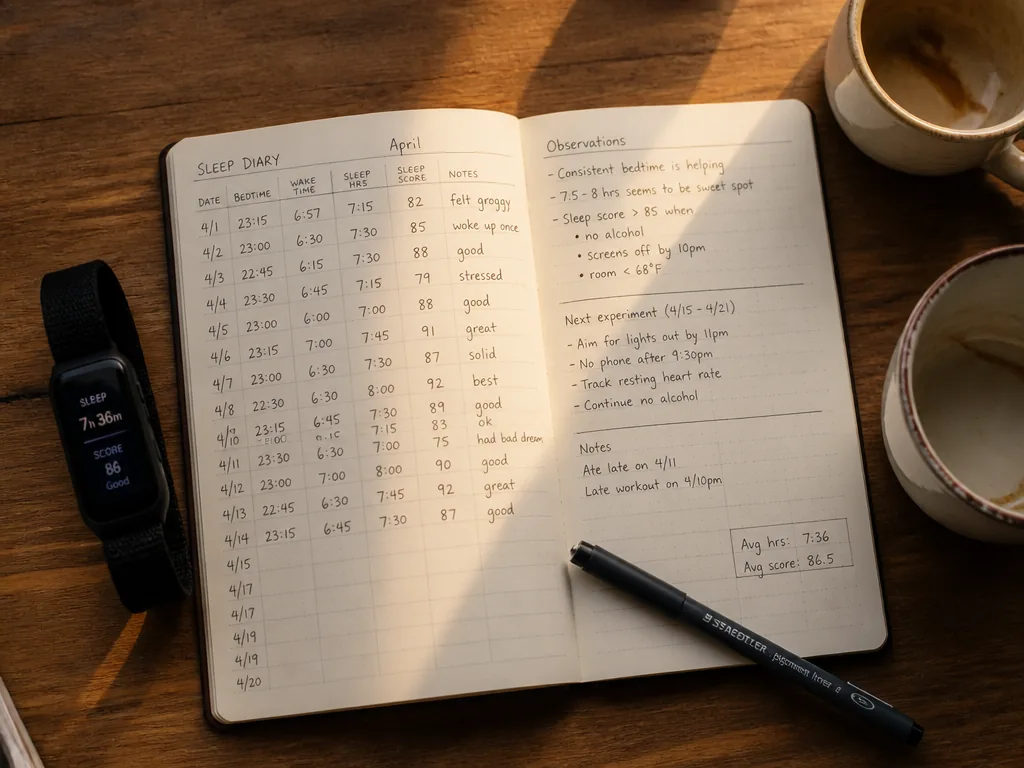 SLEEP DIARY April
DATE BEDTIME WAKE TIME SLEEP HRS SLEEP SCORE NOTES
4/1 23:15 6:57 7:15 82 felt groggy
4/2 23:00 6:30 7:30 85 woke up once
4/3 22:45 6:15 7:30 88 good
4/4 23:30 6:45 7:15 79 stressed
4/5 23:00 6:00 7:00 88 good
4/6 23:15 7:00 7:45 91 great
4/7 23:00 6:30 7:30 87 solid
4/8 22:30 6:30 8:00 92 best
4/9 23:15 6:45 7:30 89 good
4/10 7:15 83 ok
4/11 23:30 6:30 7:00 75 had bad dream
4/12 23:00 7:00 8:00 90 good
4/13 22:45 6:30 7:45 92 great
4/14 23:15 6:45 7:30 87 good
4/15
4/17
4/17
4/19
4/19
4/20
Observations
- Consistent bedtime is helping
- 7.5 - 8 hrs seems to be sweet spot
- Sleep score > 85 when
• no alcohol
• screens off by 10pm
• room < 68°F
Next experiment (4/15 - 4/21)
- Aim for lights out by 11pm
- No phone after 9:30pm
- Track resting heart rate
- Continue no alcohol
Notes
Ate late on 4/11
Late workout on 4/10pm
Avg hrs: 7:36
Avg score: 86.5
SLEEP
7h 36m
SCORE
86
Good
STAEDTLER